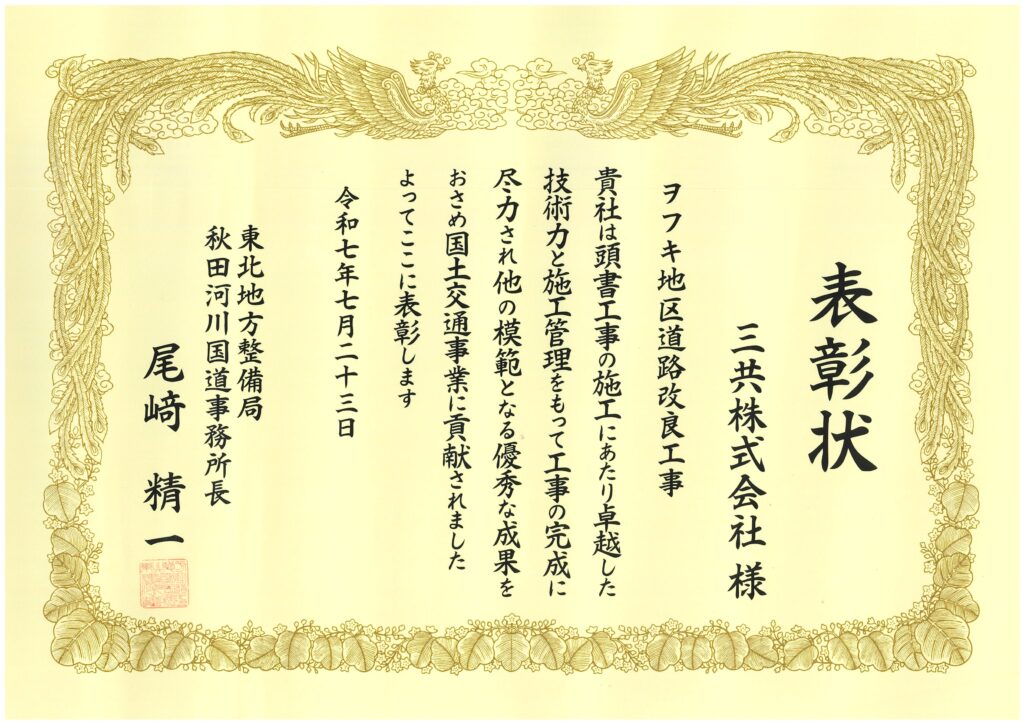 表彰状
三共株式会社 様
ヲフキ地区道路改良工事
貴社は頭書工事の施工にあたり卓越した
技術力と施工管理をもって工事の完成に
尽力され他の模範となる優秀な成果を
おさめ国土交通事業に貢献されました
よってここに表彰します
令和七年七月二十三日
東北地方整備局
秋田河川国道事務所長
尾﨑 精一